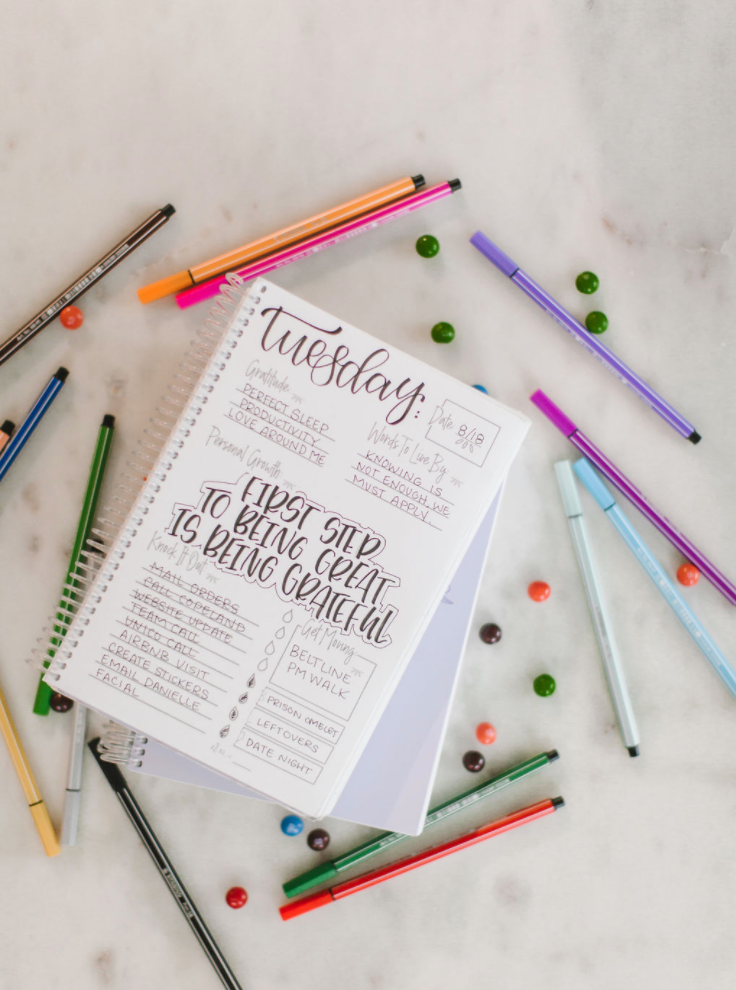 tuesday:
Date: 8/18
Gratitude
PERFECT SLEEP
PRODUCTIVITY
LOVE AROUND ME
Words To Live By
KNOWING IS
NOT ENOUGH, WE
MUST APPLY.
Personal Growth
FIRST STEP
TO BEING GREAT
IS BEING GRATEFUL
Knock It Out
MAIL ORDERS
CALL COPELAND
WEBSITE UPDATE
TEAM CALL
UNICO CALL
AIRBNB VISIT
CREATE STICKERS
EMAIL DANIELLE
FACIAL
Get Moving
BELTLINE
PM WALK
PRISON OMELET
LEFTOVERS
DATE NIGHT